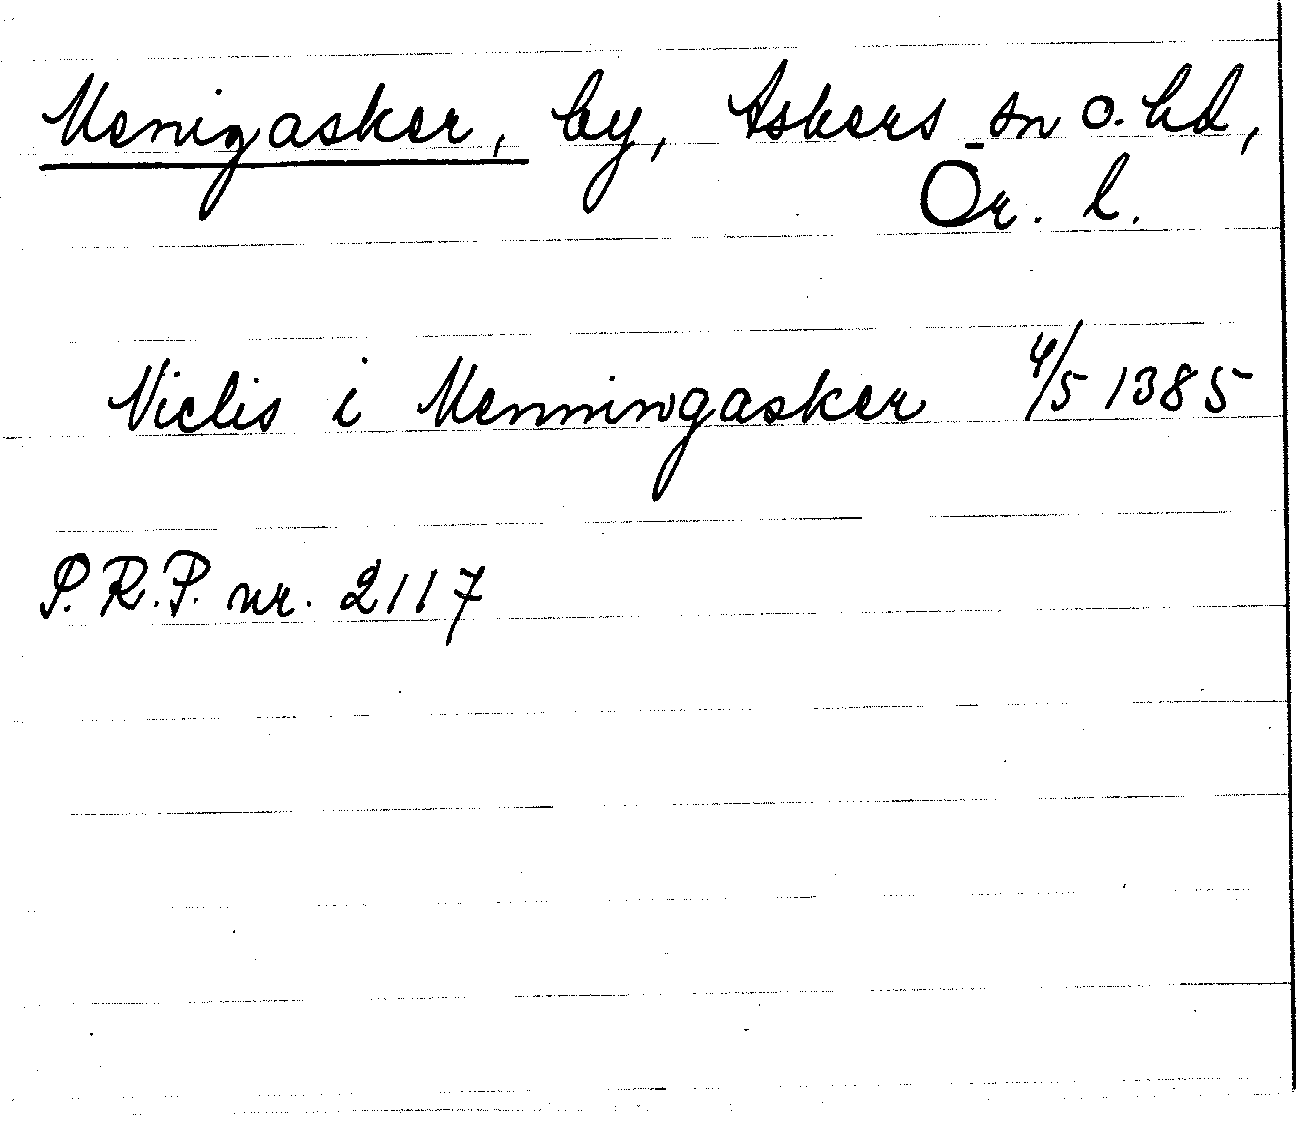 Menigasker, by, Askers sn o. hd,
Ör. l.
Niclis i Menningasker 4/5 1385
P.R.P. nr. 2117